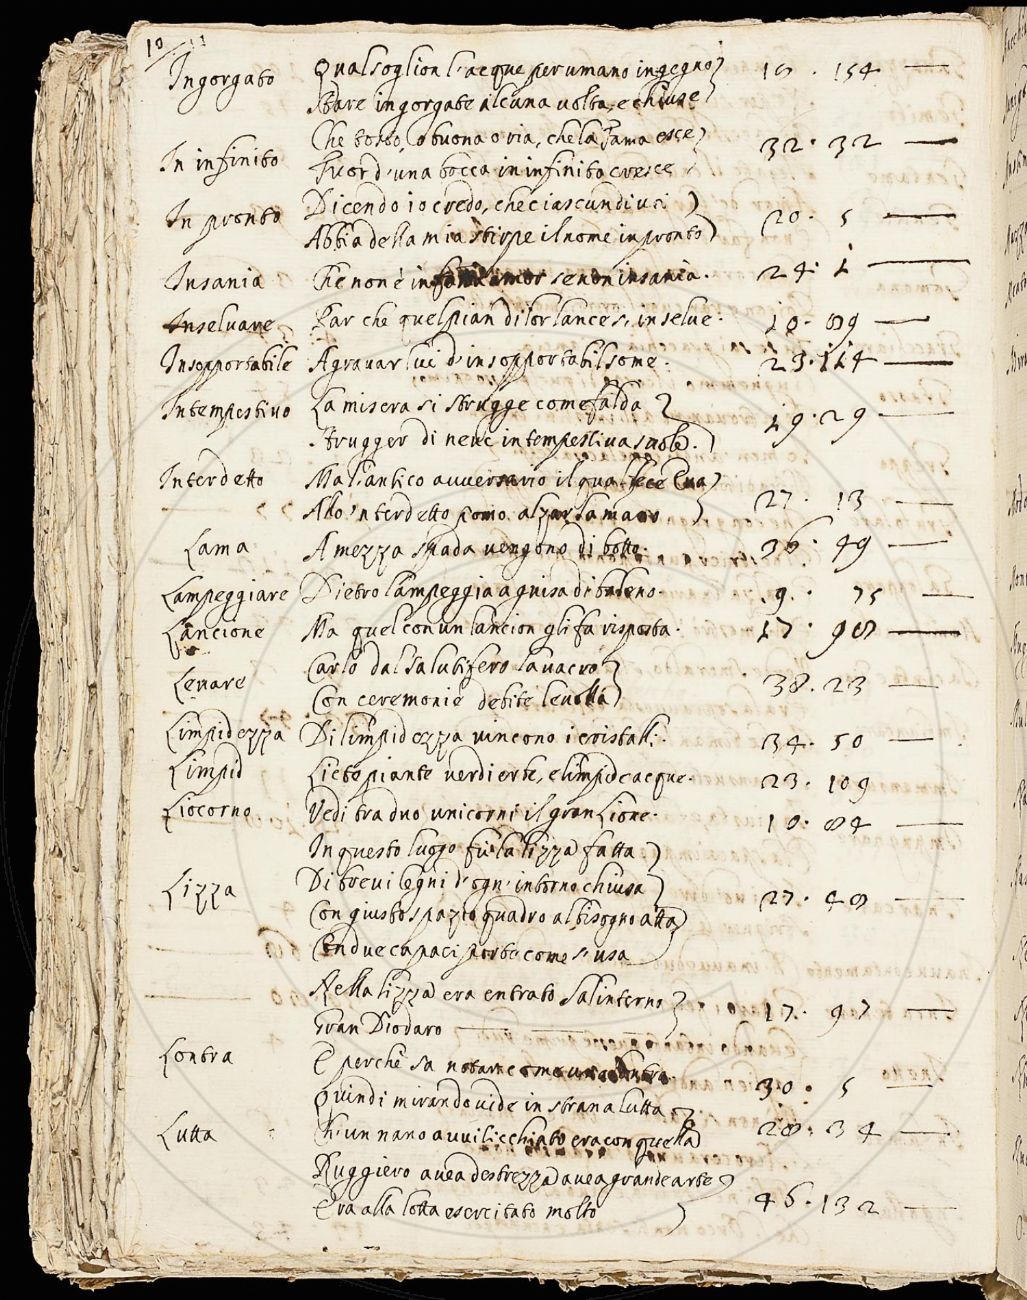 10 11
Ingorgato Qual soglion l'acque per umano ingegno 18 . 154
Stare ingorgate alcuna uolta, e chiuse
Che tosto, o buona o ria, che la Fama esce 32 . 32
In infinito Fuor d'una bocca in infinito cresce
In pronto Dicendo io credo, che ciascun di uoi 20 . 5
Abbia della mia stirpe il nome in pronto
Insania Che non è in somma amor se non insania . 24 . 1
Inseluare Par che quel pian di lor lance s'inselue . 10 . 89
Insopportabile A grauar lui d'insopportabil some . 23 . 114
Intempestiuo La misera si strugge come falda 19 . 29
Strugger di neue intempestiua suole .
Interdetto Ma l'antico auuersario il qual fece Eua 27 . 13
All'interdetto pomo alzar la mano
Lama A mezza spada uengono di botto . 36 . 49
Lampeggiare Dietro lampeggia a guisa di baleno . 9 . 75
Lancione Ma quel con un lancion gli fa risposta . 17 . 98
Carlo dal salutifero lauacro
Leuare Con ceremonie debite leuolla 38 . 23
Limpidezza Di limpidezza uincono i cristalli . 34 . 50
Limpid Liete piante uerdi erbe, e limpide acque . 23 . 109
Liocorno Vedi tra duo unicorni il gran Lione . 10 . 84
In questo luogo fu la lizza fatta
Lizza Di breui legni d'ogn'intorno chiusa 27 . 48
Con giusto spazio quadro al bisogno atta
Con due capaci porte come s'usa
Nella lizza era entrato Salinterno 17 . 97
Gran Diodaro
Lontra E perchè sa notar come una lontra . 30 . 5
Quindi mirando uide in strana lutta
Lutta Ch'un nano auuiticchiato era con quella 28 . 34
Ruggiero auea destrezza auea grande arte
Era alla lotta esercitato molto 46 . 132